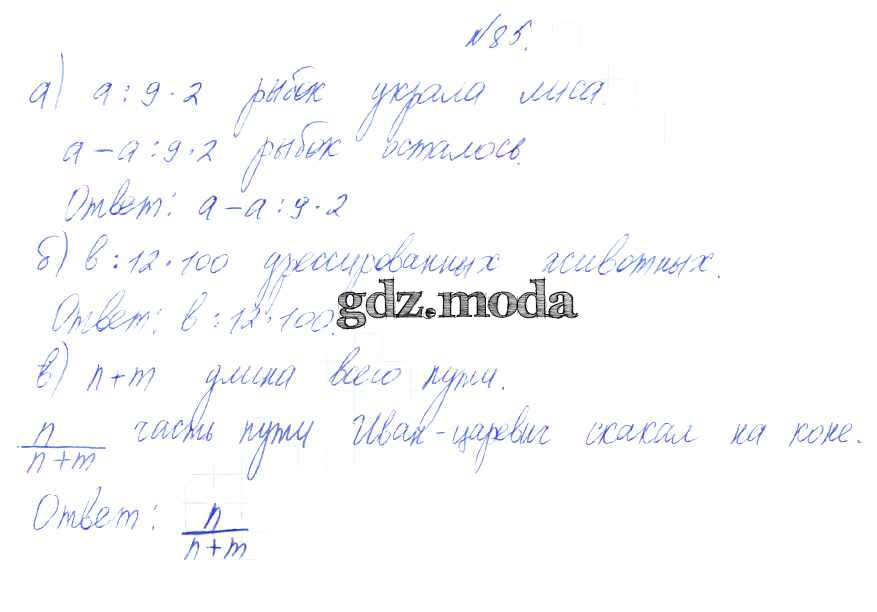 №85.
а) a : 9 · 2 рыбок украла лиса.
a – a : 9 · 2 рыбок осталось.
Ответ: a – a : 9 · 2
б) в : 12 · 100 дрессированных животных.
Ответ: в : 12 · 100.
gdz.moda
в) n + m длина всего пути.
n/(n+m) часть пути Иван-царевич скакал на коне.
Ответ: n/(n+m)